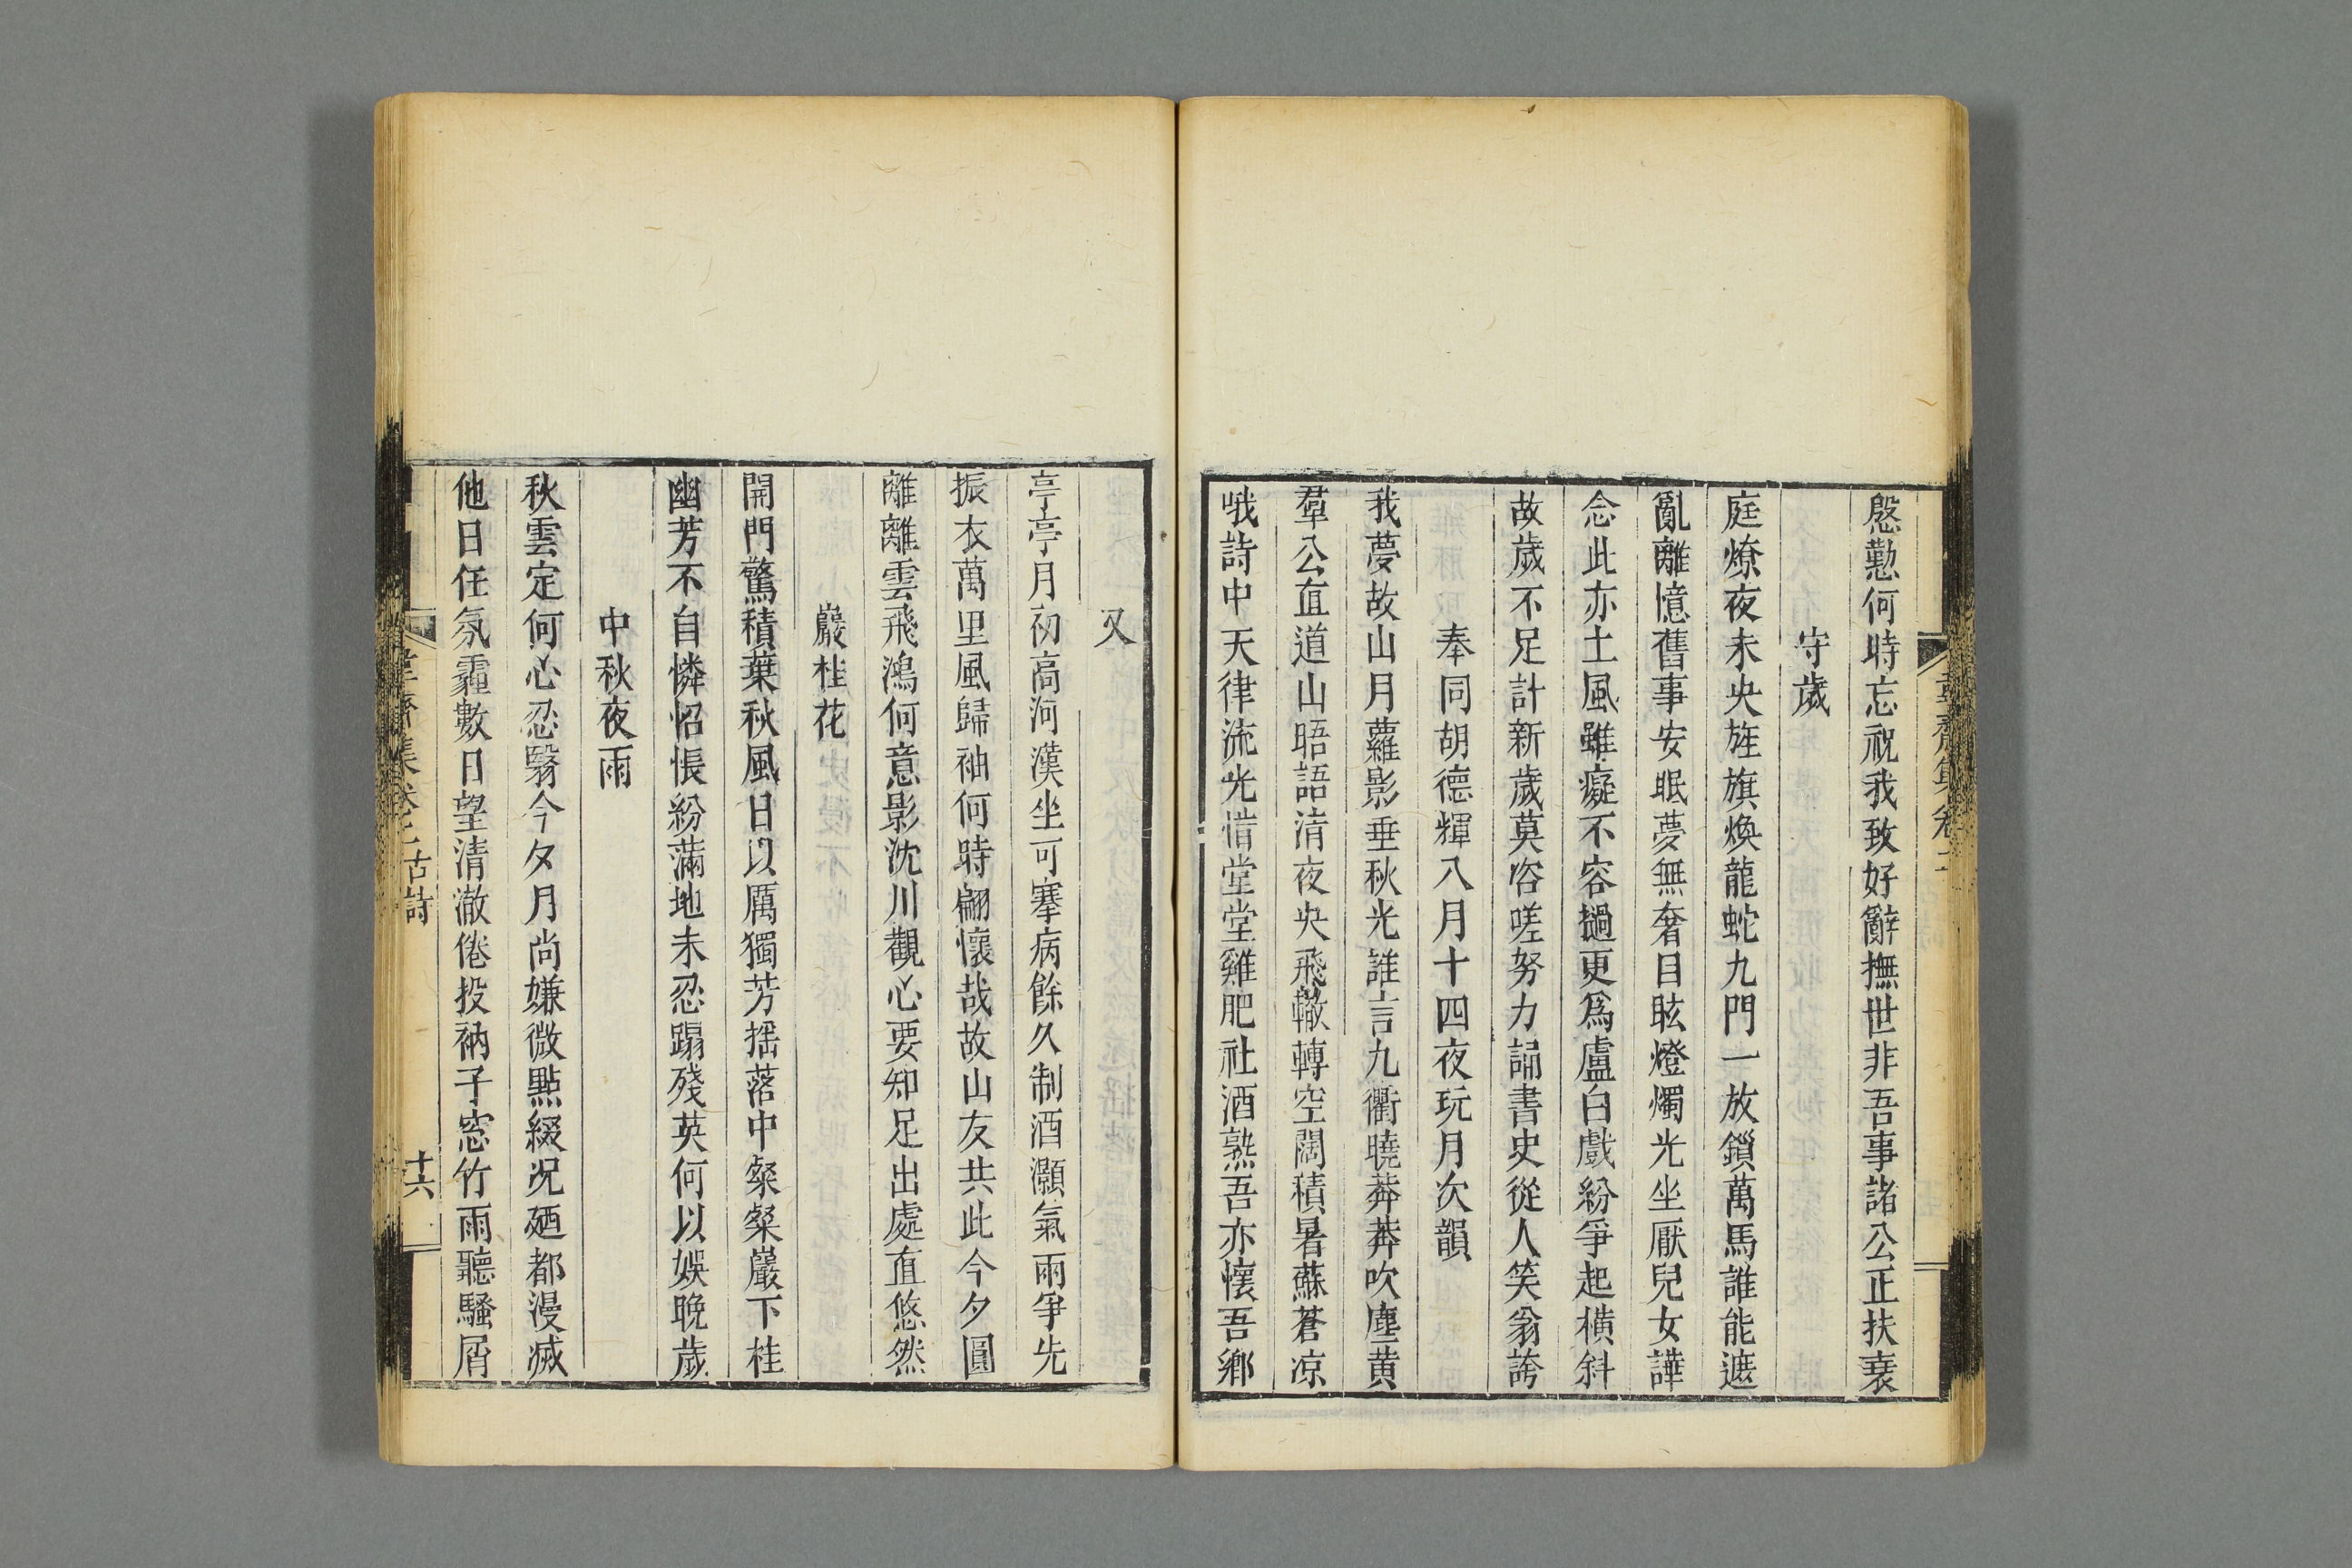 慇懃何時忘祝我致好辭撫世非吾事諸公正扶衰
守歲
庭燎夜未央旌旗煥龍蛇九門一放鎖萬馬誰能遮
亂離憶舊事安眠夢無奢目眩燈燭光坐厭兒女譁
念此亦土風雖癡不容撾更爲盧白戲紛爭起橫斜
故歲不足計新歲莫咨嗟努力誦書史從人笑翁誇
奉同胡德輝八月十四夜玩月次韻
我夢故山月蘿影垂秋光誰言九衢曉莽莽吹塵黃
羣公直道山晤語清夜央飛轍轉空闊積暑蘇蒼凉
哦詩中天律流光惜堂堂雞肥社酒熟吾亦懷吾鄉
又
亭亭月初高河漢坐可搴病餘久制酒灝氣雨爭先
振衣萬里風歸袖何時翩懷哉故山友共此今夕圓
離離雲飛鴻何意影沈川觀心要知足出處直悠然
巖桂花
開門驚積葉秋風日以厲獨芳揺落中粲粲巖下桂
幽芳不自憐怊悵紛滿地未忍蹋殘英何以娛晚歲
中秋夜雨
秋雲定何心忍翳今夕月尚嫌微點綴况廼都漫滅
他日任氛霾數日望清澈倦投衲子窓竹雨聽騷屑
韋齋集卷二古詩 十六